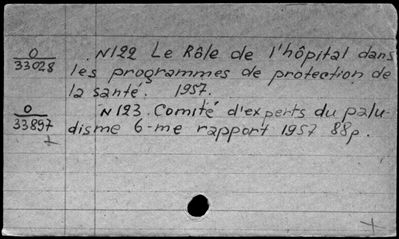 0
33028
N122 Le Rôle de l'hôpital dans
les programmes de protection de
la santé. 1957.
0
33897
I
N123. Comité d'experts du palu-
disme 6-me rapport 1957 88p.